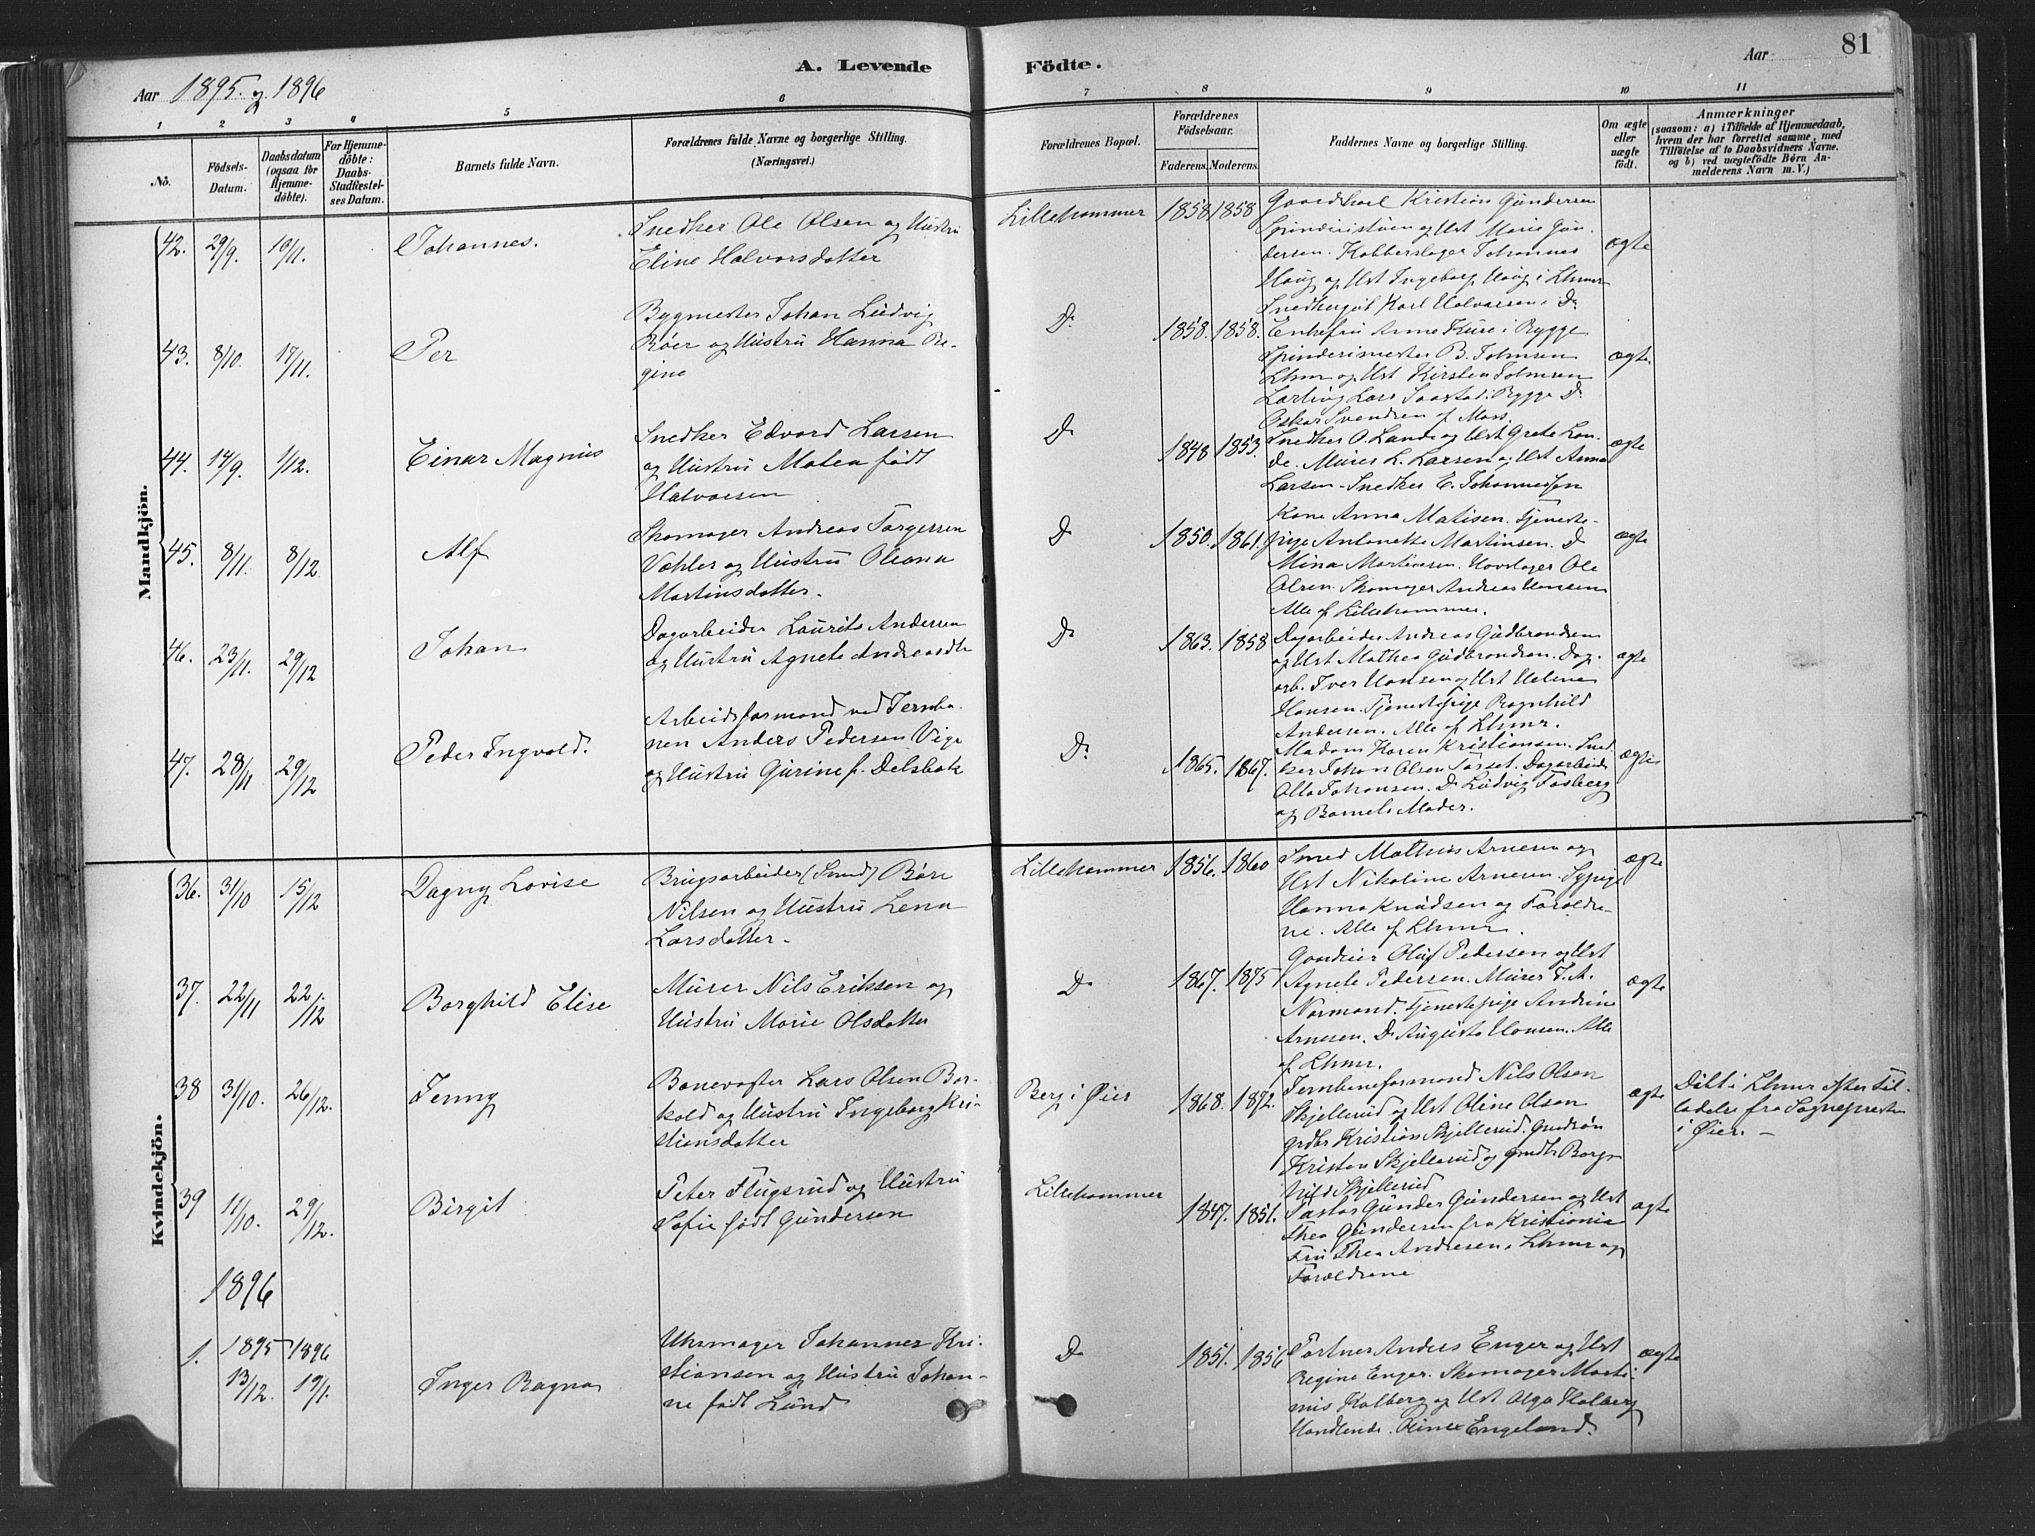 A. Levende Födte.
Aar 1895. og 1896
Aar
81
1 2 3 4 5 6 7 8 9 10 11
No.
Födsels-
Datum.
Daabsdatum
(ogsaa for
Hjemme-
døbte).
For Hjemme-
døbte:
Daabs-
Stadfæstel-
ses Datum.
Barnets fulde Navn.
Forældrenes fulde Navne og borgerlige Stilling.
(Næringsvei.)
Forældrenes Bopæl.
Forældrenes
Födselsaar.
Faderens. Moderens.
Faddernes Navne og borgerlige Stilling.
Om ægte
eller
uægte
født.
Anmærkninger
(saasom: a) i Tilfælde af Hjemmedaab,
hvem der har forrettet samme, med
Tilføielse af to Daabsvidners Navne.
og b) ved uægtefødte Børn An-
melderens Navn m. V.)
Mandkjön.
42. 29/9. 10/11. Johannes.
Snedker Ole Olsen og Hustru
Eline Halvorsdatter
Lillehammer 1858 1858
Gaardkarl Kristian Gundersen
Spinderistuen og Hst Marie Gun-
dersen. Kobberslager Johannes
Haug og Hst Ingeborg Haug i Lhmr
Snedkergut Karl Halvorsen. Do
ægte
43. 8/10. 17/11. Per
Bygmester Johan Ludvig
Röer og Hustru Hanna Re-
gine
Do 1858. 1858.
Enkefru Anne Kure i Rygge
Spinderimester B. Johnsen
Lhmr og Hst Kirsten Johnsen
Lærling Lars Saastad i Rygge Do
Oskar Svendsen af Moss.
ægte.
44. 14/9. 1/12. Einar Magnus
Snedker Edvard Larsen
og Hustru Matea født
Halvorsen
Do 1848 1853.
Snedker O. Lande og Hst Grete Lan-
de. Murer L. Larsen og Hst Anna
Larsen. Snedker E. Johannessen
ægte
45. 8/11. 8/12. Alf
Skomager Andreas Torgersen
Vahler og Hustru Oleana
Martinsdatter.
Do 1850. 1861.
Kone Anna Matisen. Tjeneste-
pige Antonette Martinsen. Do
Mina Martinsen. Hovslager Ole
Olsen. Skomager Andreas Hansen
Alle af Lillehammer.
ægte
46. 23/11. 29/12 Johan
Dagarbeider Laurits Andersen
og Hustru Agnete Andreasdtr
Do 1863. 1858
Dagarbeider Andreas Gudbrandsen
og Hst Mathea Gudbrandsen. Dag-
arb. Iver Hansen og Hst Helene
Hansen. Tjenestepige Ragnhild
Andersen. Alle af Lhmr.
ægte
47. 28/11 29/12 Peder Ingvald.
Arbeidsformand ved Jernba-
nen Anders Pedersen Vige
og Hustru Gurine f. Delsbak
Do 1865. 1867.
Madam Karen Kristiansen. Sned-
ker Johan Olsen Torset. Dagarbeid
Otto Johansen. Do Ludvig Fosberg
og Barnets Moder.
ægte
Kvindekjön.
36. 31/10 15/12 Dagny Lovise
Brugsarbeider (Smed) Böre
Nilsen og Hustru Lena
Larsdatter.
Lillehammer 1856. 1860
Smed Mathias Arnesen og
Hst Nikoline Arnesen. Sypige
Hanna Knudsen og Forældre-
ne. Alle af Lhmr.
ægte
37. 22/11 22/12 Borghild Elise
Murer Nils Eriksen og
Hustru Marie Olsdatter
Do 1867. 1875
Olaf Pedersen og Hst
Agnete Pedersen. Murer T. A.
Normand. Tjenestepige Andrine
Arnesen. Do Augusta Hansen. Alle
af Lhmr.
ægte
38 31/10. 26/12. Jenny
Banevogter Lars Olsen Bor-
kold og Hustru Ingeborg Kri-
stiansdatter
Berg i Øier 1868. 1872.
Jernbaneformand Nils Olsen
Skjellerud og Hst Oline Olsen
grdbr Kristian Skjellerud. Gmdsön
Kristen Skjellerud og gmdtr Borg-
hild Skjellerud
ægte
Döbt i Lhmr efter Til-
ladelse fra Sognepresten
i Øier. —
39 11/10. 29/12. Birgit
Peter Flugsrud og Hustru
Sofie født Gundersen
Lillehammer 1847. 1851.
Pastor Gunder Gundersen og Hst
Thea Gundersen fra Kristiania
Fru Thea Andresen i Lhmr og
Forældrene
ægte
1896
1. 1895 13/12. 1896 19/1. Inger Ragna
Uhrmager Johannes Kri-
stiansen og Hustru Johan-
ne født Lund
Do 1851. 1856
Gartner Anders Enger og Hst
Regine Enger. Skomager Marti-
nus Kolberg og Hst Olga Kolberg
Handlende. Engeland.
ægte